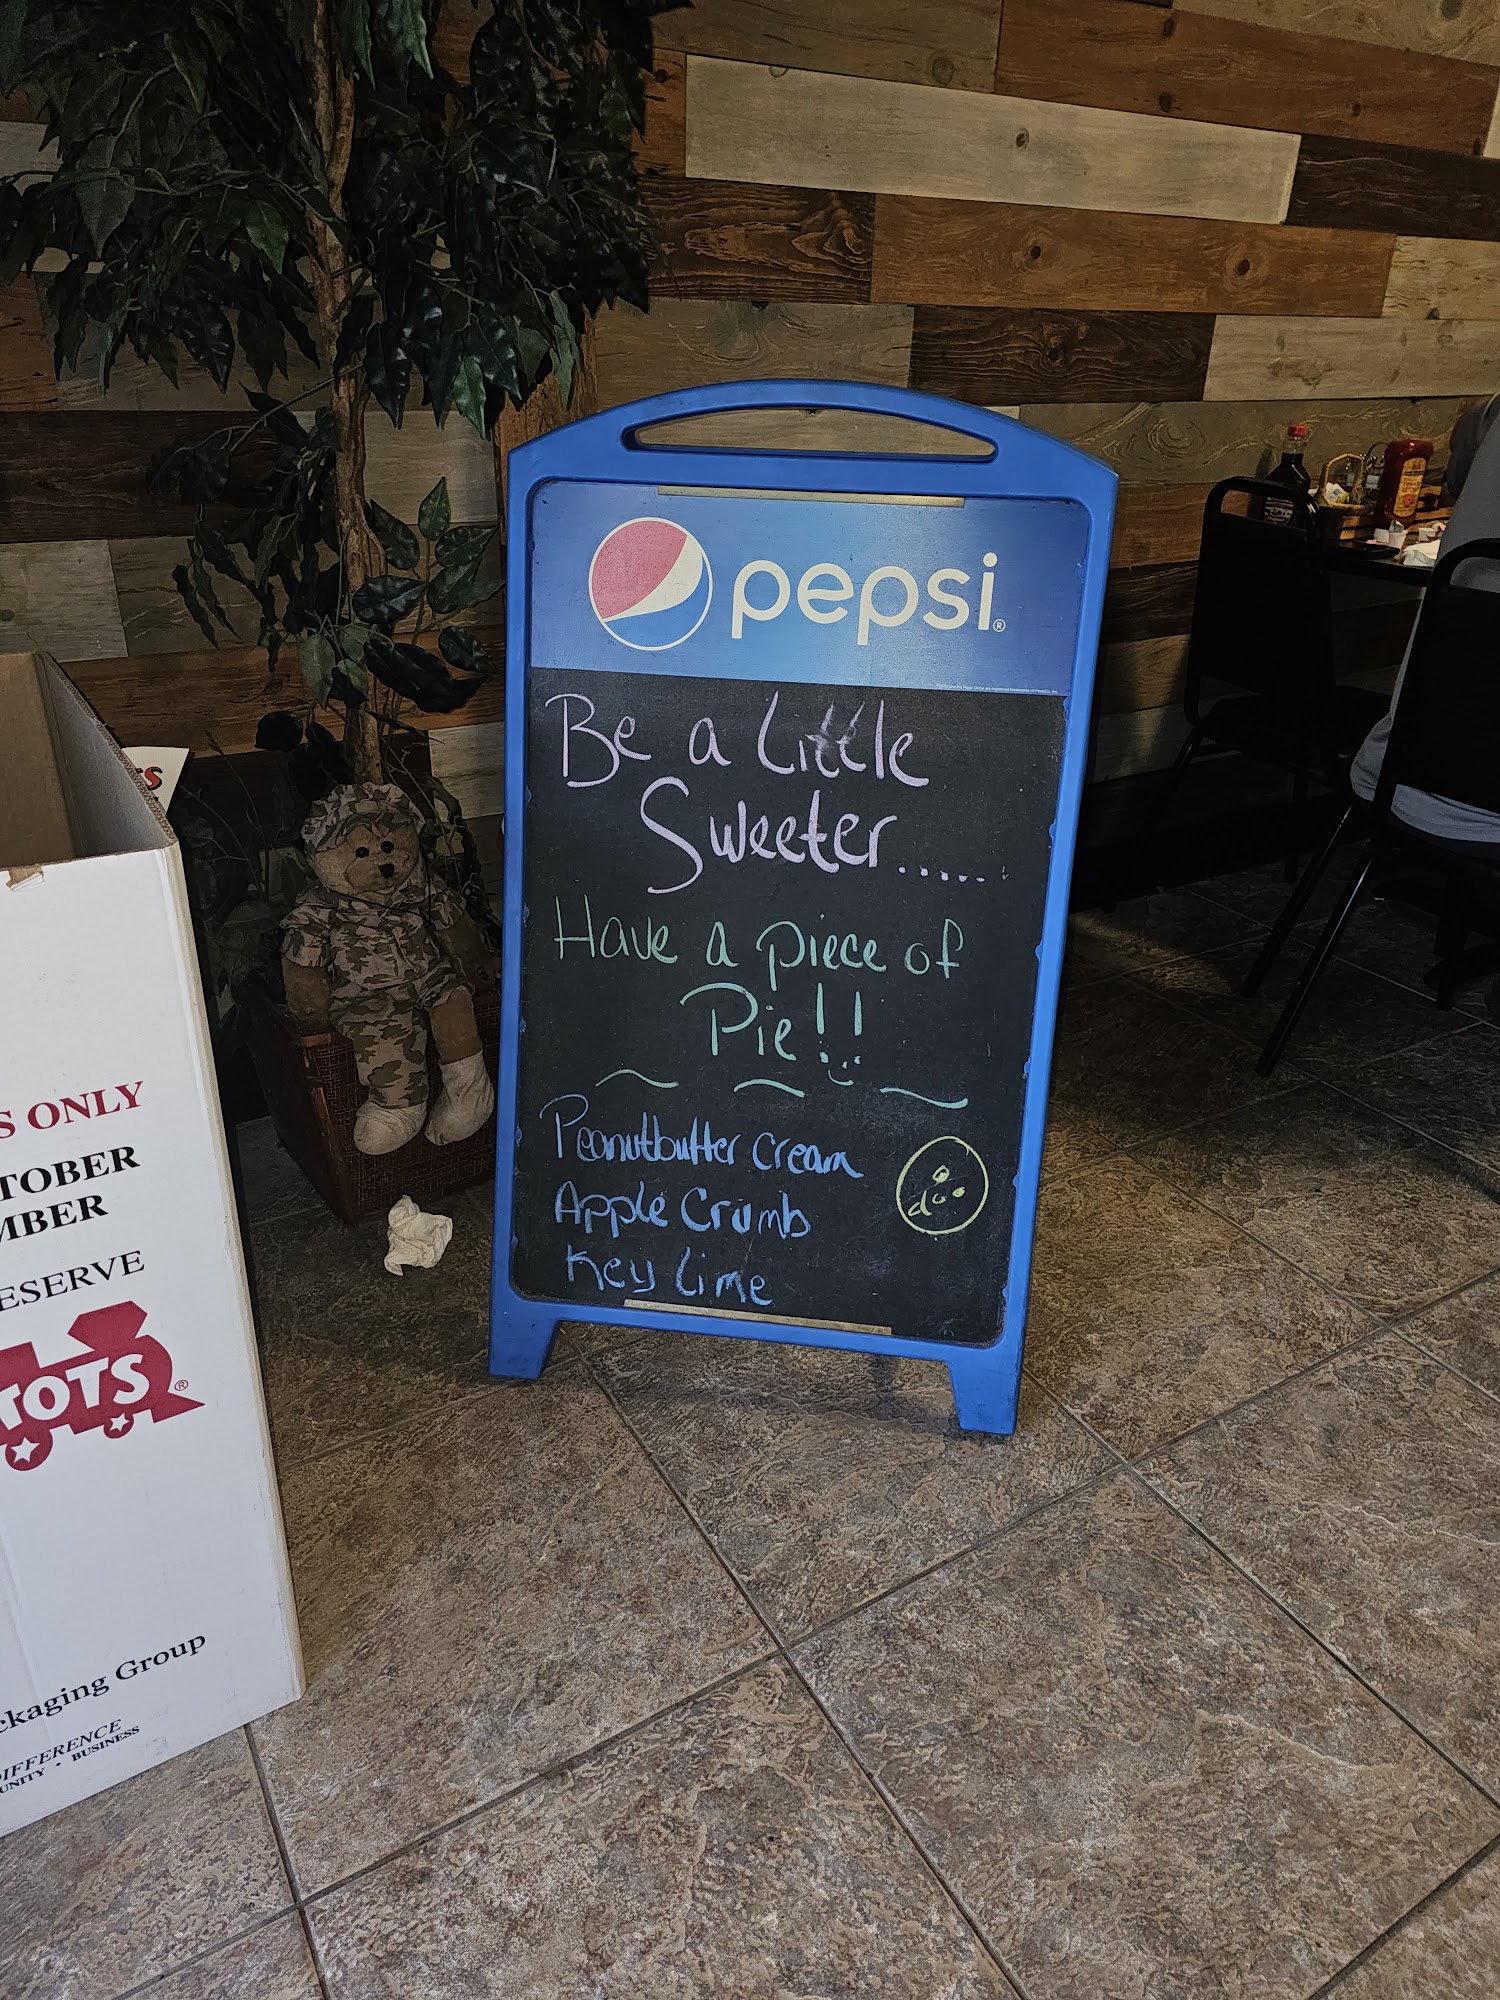 pepsi®
Be a Little
Sweeter......
Have a piece of
Pie!!
Peanutbutter cream
Apple Crumb
Key Lime
S ONLY
TOBER
MBER
ESERVE
TOTS®
ckaging Group
DIFFERENCE
UNITY • BUSINESS